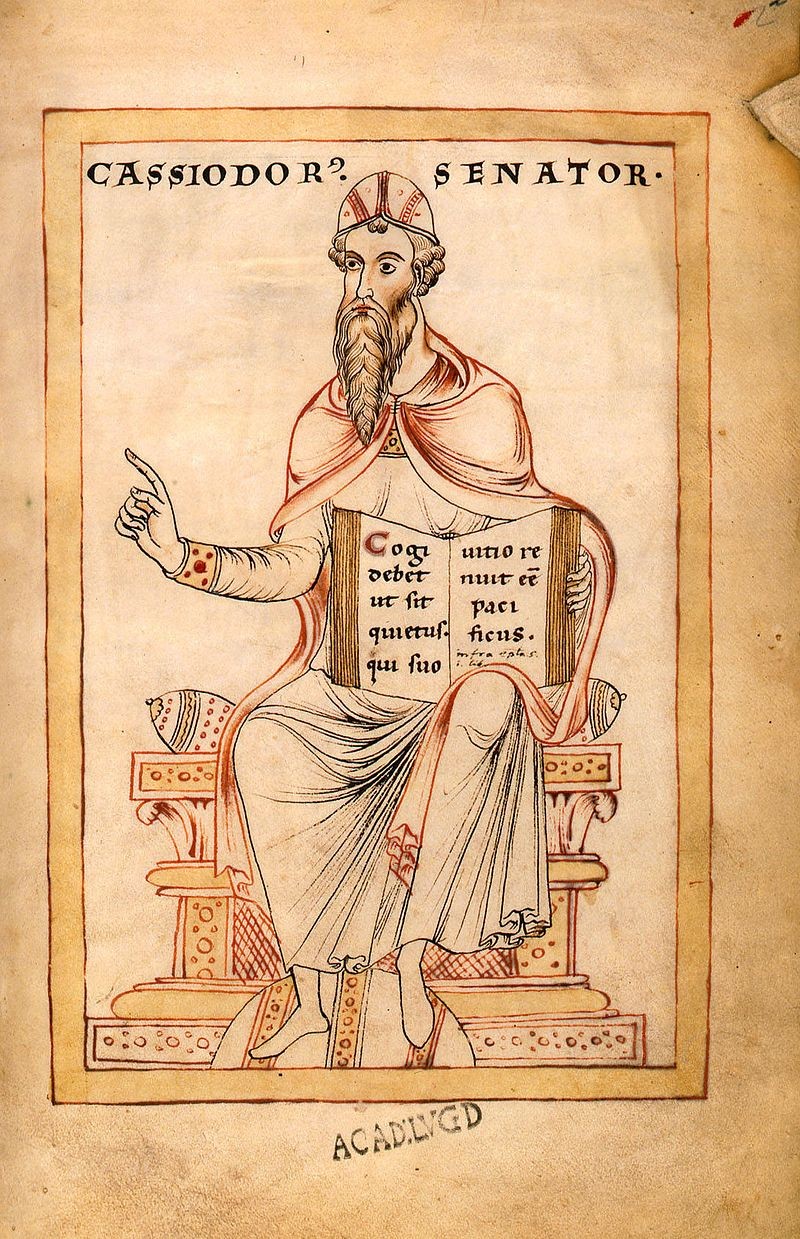 CASSIODORꝰ. SENATOR.
Cogi
debet
ut sit
quietus.
qui suo
uitio re
nuit eē
paci
ficus.
infra epla
ACAD.LVGD